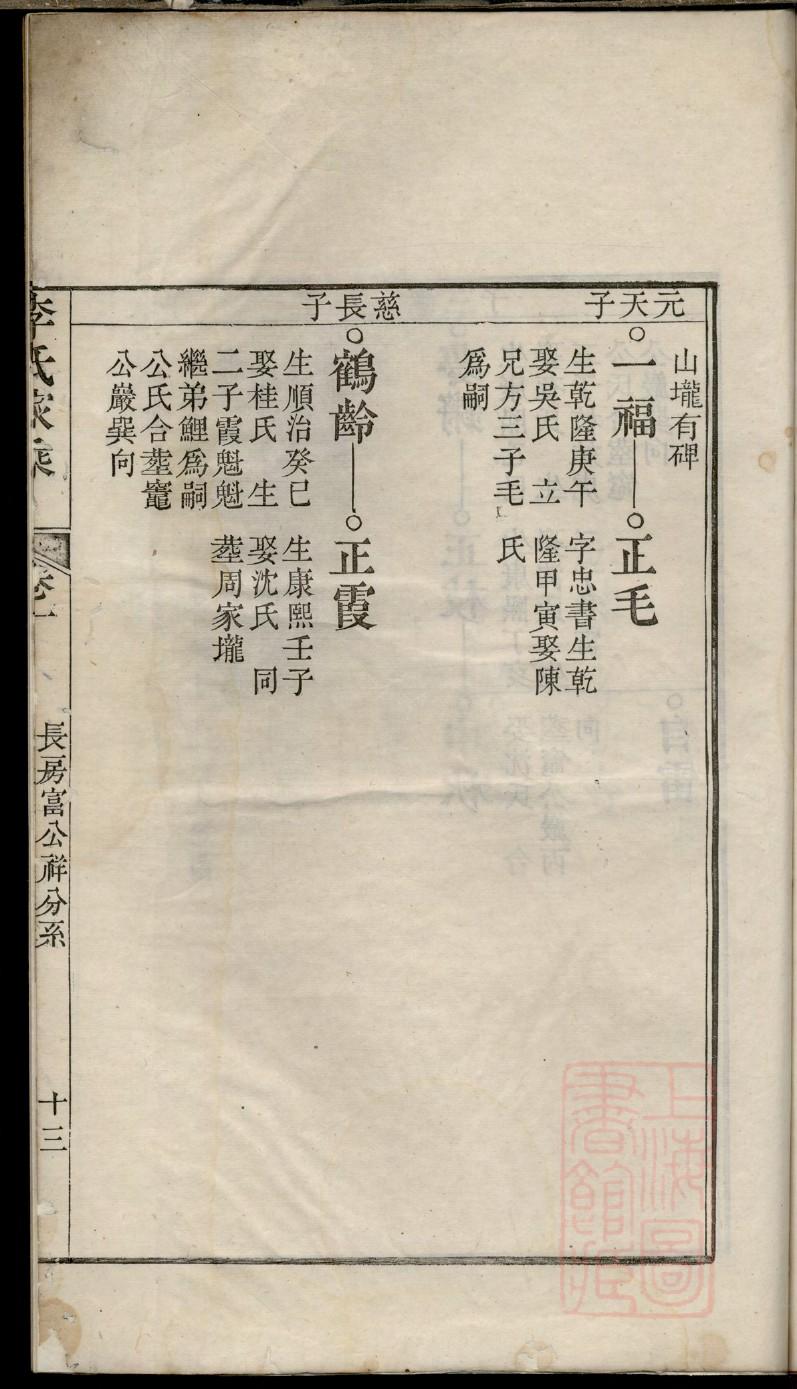 元天子
山壠有碑
一福
生乾隆庚午
娶吳氏 立
兄方三子毛
爲嗣
正毛
字忠書生乾
隆甲寅娶陳
氏
慈長子
鶴齡
生順治癸巳
娶桂氏 生
二子霞魁魁
繼弟鯉爲嗣
公氏合塟竈
公巖巽向
正霞
生康熙壬子
娶沈氏 同
塟周家壠
李氏家乘
卷一
長房富公祥分系
十三
上海圖
書館藏